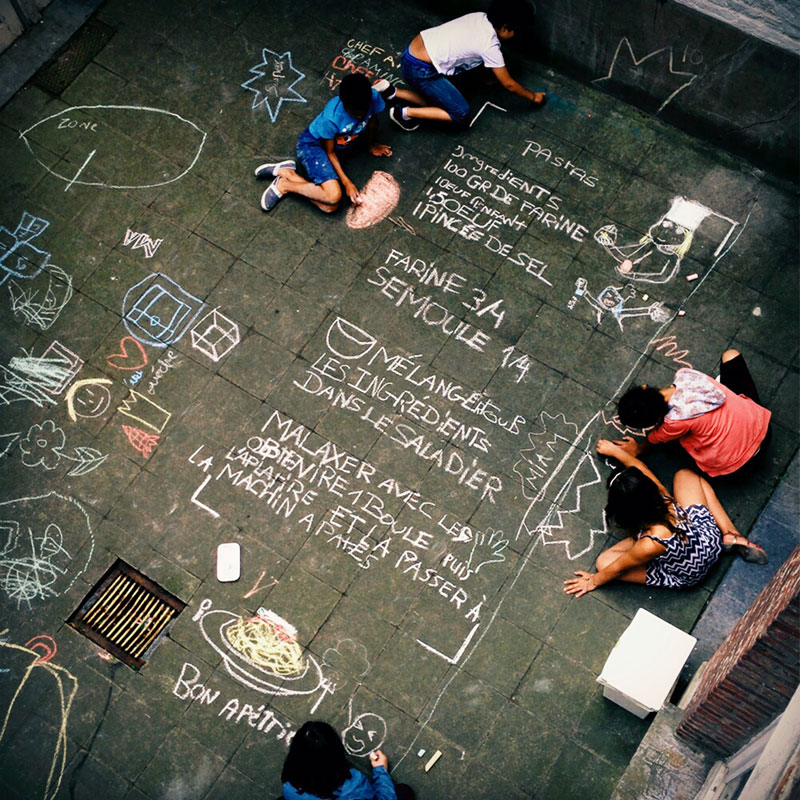 CHEF A
super
ZONE
10
PASTAS
INGREDIENTS
100 GR DE FARINE
1 OEUF / ENFANT
1,5 OEUF
1 PINCÉE DE SEL
FARINE 3/4
SEMOULE 1/4
MÉLANGER
LES INGRÉDIENTS
DANS LE SALADIER
MALAXER AVEC LES
OBTENIRE 1 BOULE PUIS
L'APLATIRE ET LA PASSER À
LA MACHIN A PATES
MIAM
BON APÉTTIT